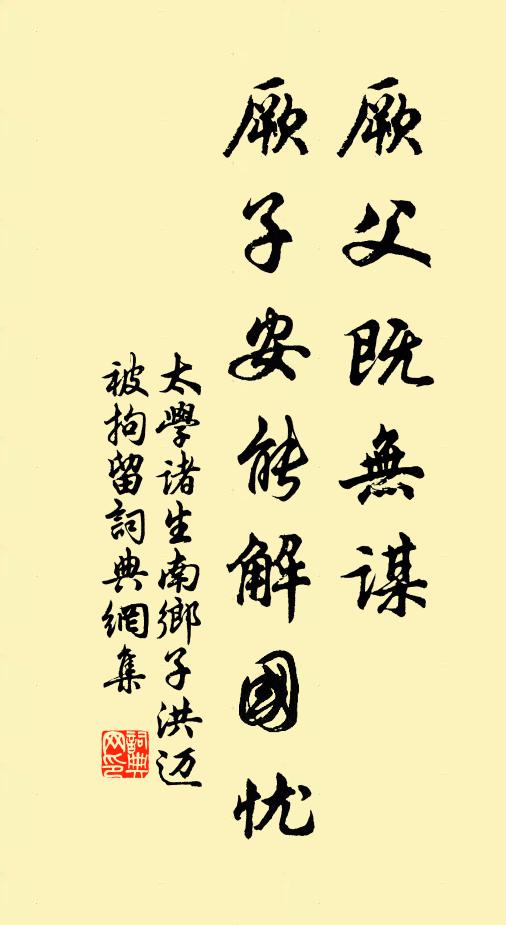 厥父既無謀
厥子安能解國忧
太學諸生南鄉子洪迈
被拘留詞典網集
詞典
网印